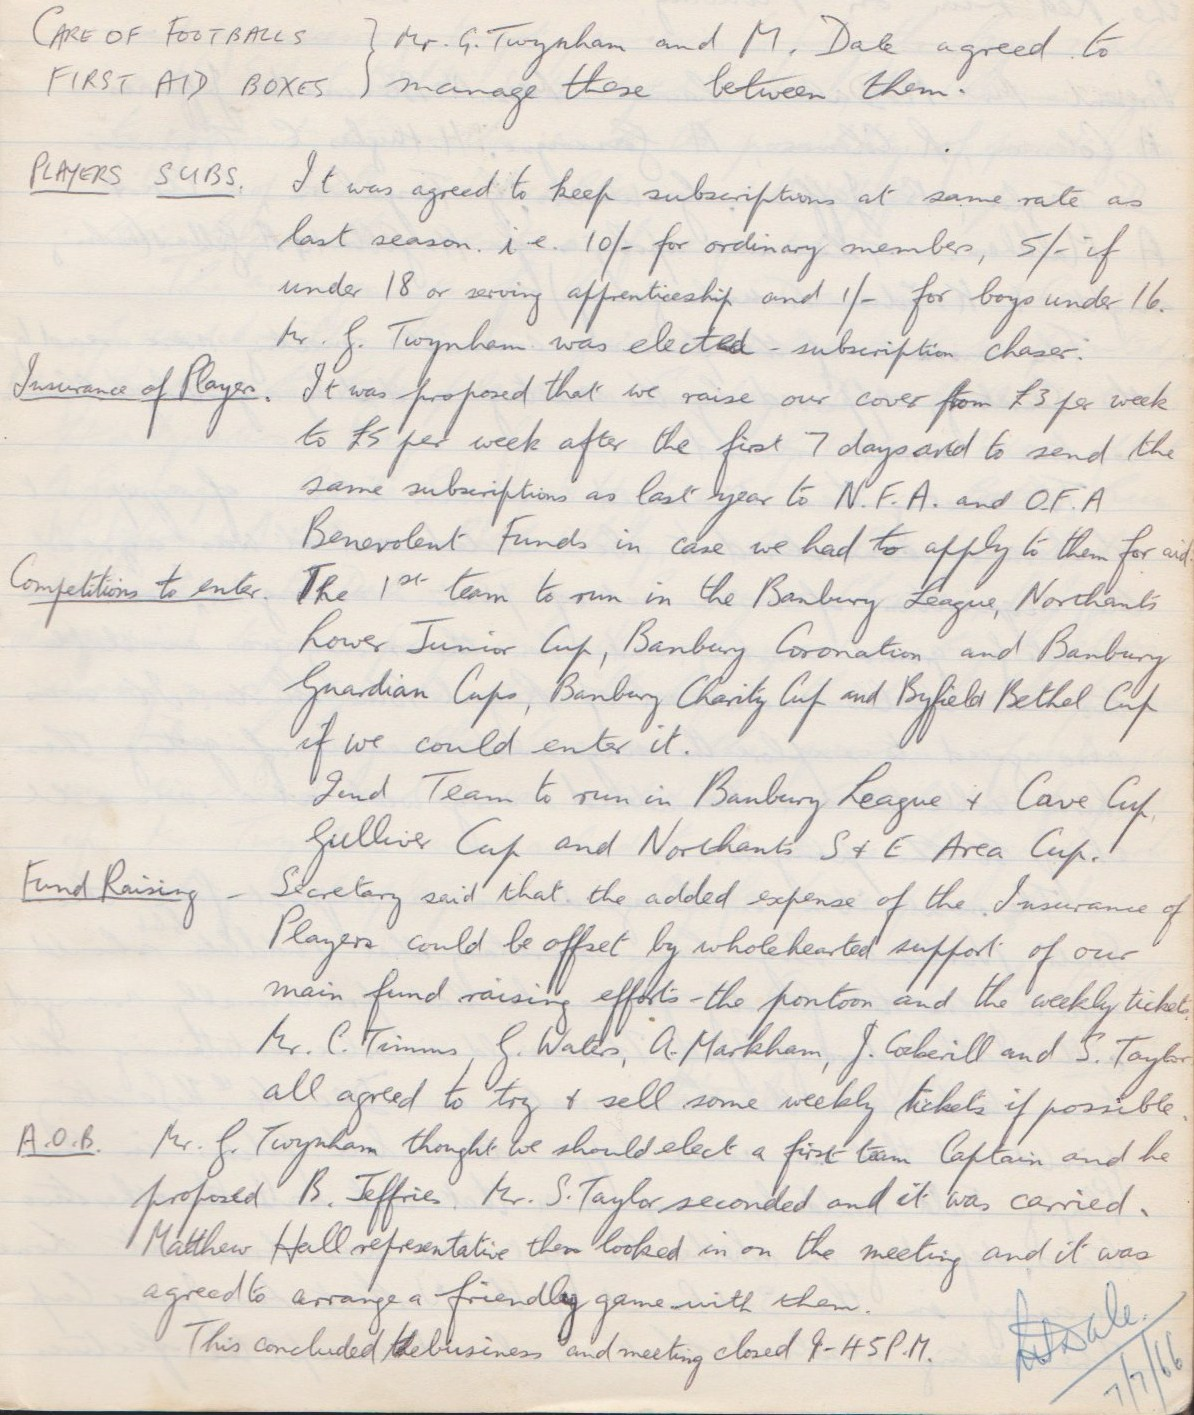 CARE OF FOOTBALLS } Mr. G. Twynham and M. Dale agreed to
FIRST AID BOXES } manage these between them.
PLAYERS SUBS. It was agreed to keep subscriptions at same rate as
last season. i.e. 10/- for ordinary members, 5/- if
under 18 or serving apprenticeship and 1/- for boys under 16.
Mr. G. Twynham was elected - subscription chaser.
Insurance of Players. It was proposed that we raise our cover from £3 per week
to £5 per week after the first 7 days and to send the
same subscriptions as last year to N.F.A. and O.F.A
Benevolent Funds in case we had to apply to them for aid.
Competitions to enter. The 1st team to run in the Banbury League, Northants
Lower Junior Cup, Banbury Coronation and Banbury
Guardian Cups, Banbury Charity Cup and Byfield Bethel Cup
if we could enter it.
2nd Team to run in Banbury League & Cave Cup,
Gulliver Cup and Northants S & E Area Cup.
Fund Raising - Secretary said that the added expense of the Insurance of
Players could be offset by wholehearted support of our
main fund raising efforts - the pontoon and the weekly tickets.
Mr. C. Timms, G. Waters, A. Markham, J. Cockerill and S. Taylor
all agreed to try & sell some weekly tickets if possible.
A.O.B. Mr. G. Twynham thought we should elect a first team Captain and he
proposed B. Jeffries. Mr. S. Taylor seconded and it was carried.
Matthew Hall representative then looked in on the meeting and it was
agreed to arrange a friendly game with them.
This concluded the business and meeting closed 9-45 P.M.
Dale.
7/7/66